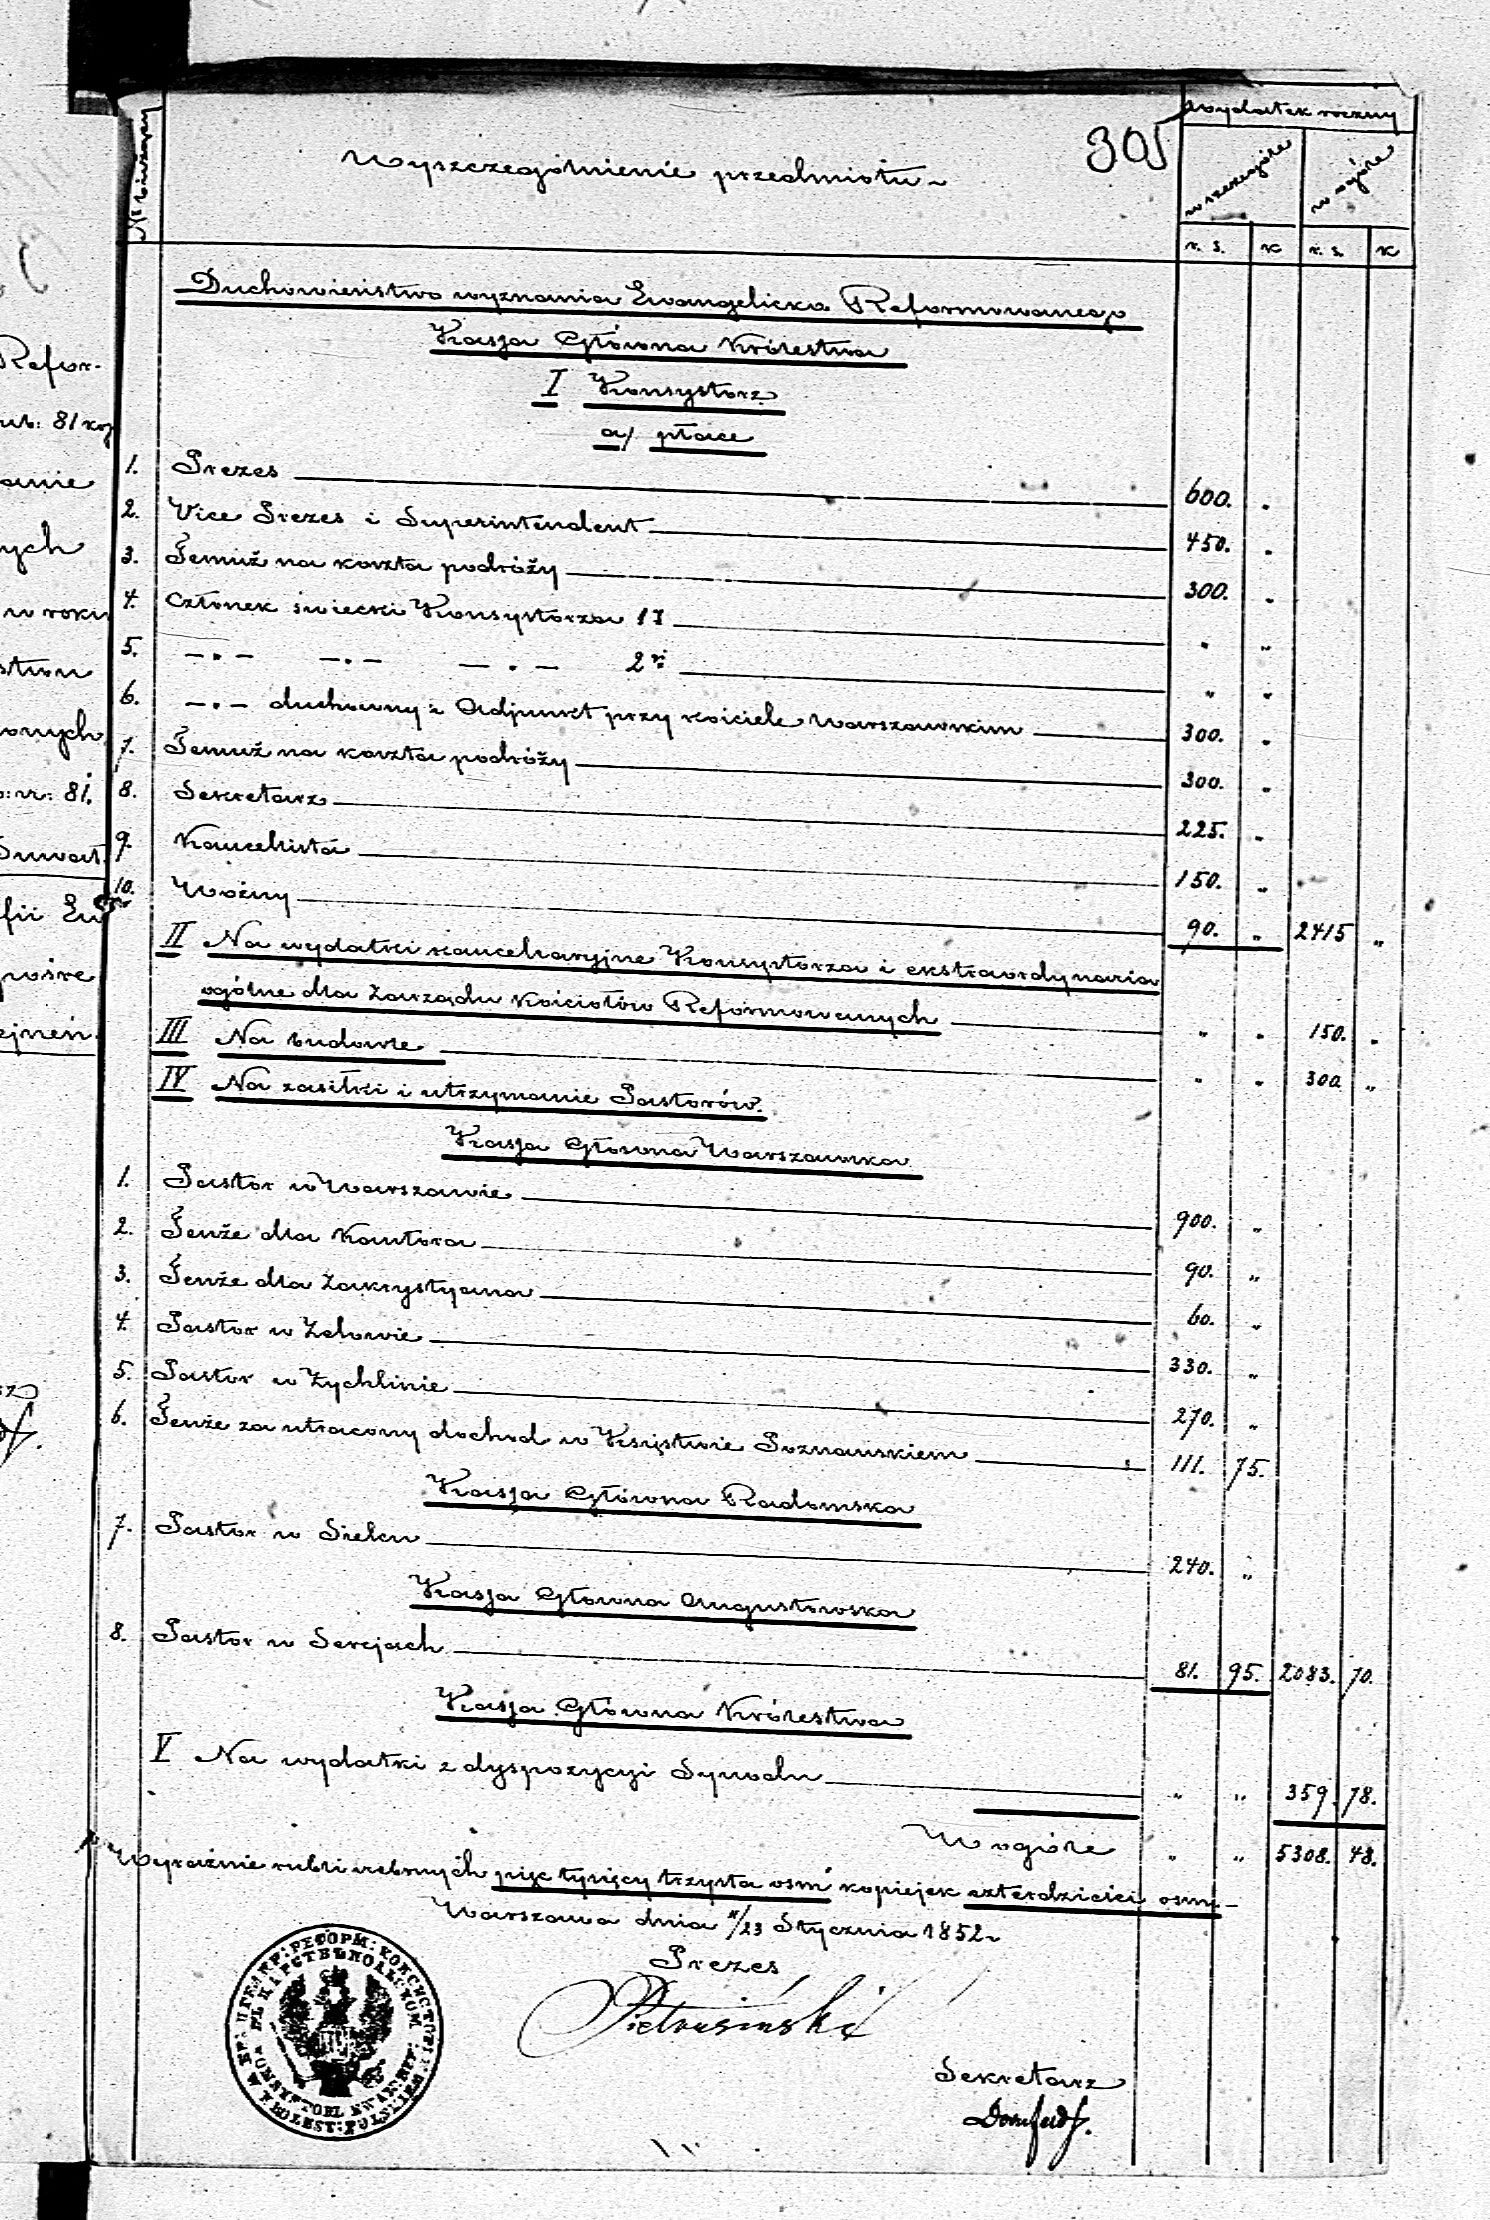 305
Wydatek roczny
№ bieżący
Wyszczególnienie przedmiotu
w szczególe
w ogóle
r. s. k r. s. k
Duchowieństwo wyznania Ewangelicko Reformowanego
Kassa Główna Królestwa
I Konsystorz
a/ płace
1. Prezes 600. "
2. Vice Prezes i Superintendent 450. "
3. Temuż na koszta podróży 300. "
4. Członek świecki Konsystorza 1 " "
5. —"— —"— —"— 2 " "
6. —"— duchowny i Adjunkt przy kościele Warszawskim 300. "
7. Temuż na koszta podróży 300. "
8. Sekretarz 225. "
9. Kancelista 150. "
10. Woźny 90. " 2415 "
II Na wydatki kancelaryjne Konsystorza i ekstraordynaria
ogólne dla Zarządu Kościołów Reformowanych " " 150. "
III Na budowle " " 300 "
IV Na zasiłki i utrzymanie Pastorów.
Kassa Główna Warszawska
1. Pastor w Warszawie 900. "
2. Tenże dla Kantora 90. "
3. Tenże dla Zakrystyana 60. "
4. Pastor w Zelowie 330. "
5. Pastor w Żychlinie 270. "
6. Tenże za utracony dochod w Księstwie Poznańskiem 111. 75.
Kassa Główna Radomska
7. Pastor w Sielcu 240. "
Kassa Główna Augustowska
8. Pastor w Serejach 81. 95. 2083. 70.
Kassa Główna Królestwa
V Na wydatki z dyspozycyi Synodu " " 359. 78.
W ogóle " " 5308. 48.
Wyraźnie rubli srebrnych pięć tysięcy trzysta osm kopiejek czterdzieści osm.
Warszawa dnia 11/23 Stycznia 1852 r
Prezes
Pietrusiński
Sekretarz
Refor-
81 kop
anie
ych
w roku
stwu
onych
81.
Suwał.
fii Ew
pośre